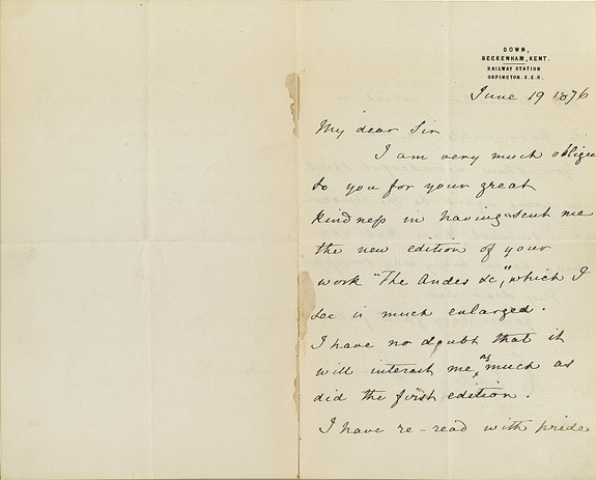 DOWN,
BECKENHAM, KENT.
RAILWAY STATION
ORPINGTON. S.E.R.
June 19 1876
My dear Sir
I am very much oblige
to you for your great
kindness in having sent me
the new edition of your
work "The Andes &c", which I
see is much enlarged.
I have no doubt that it
will interest me, as much as
did the first edition.
I have re-read with pride